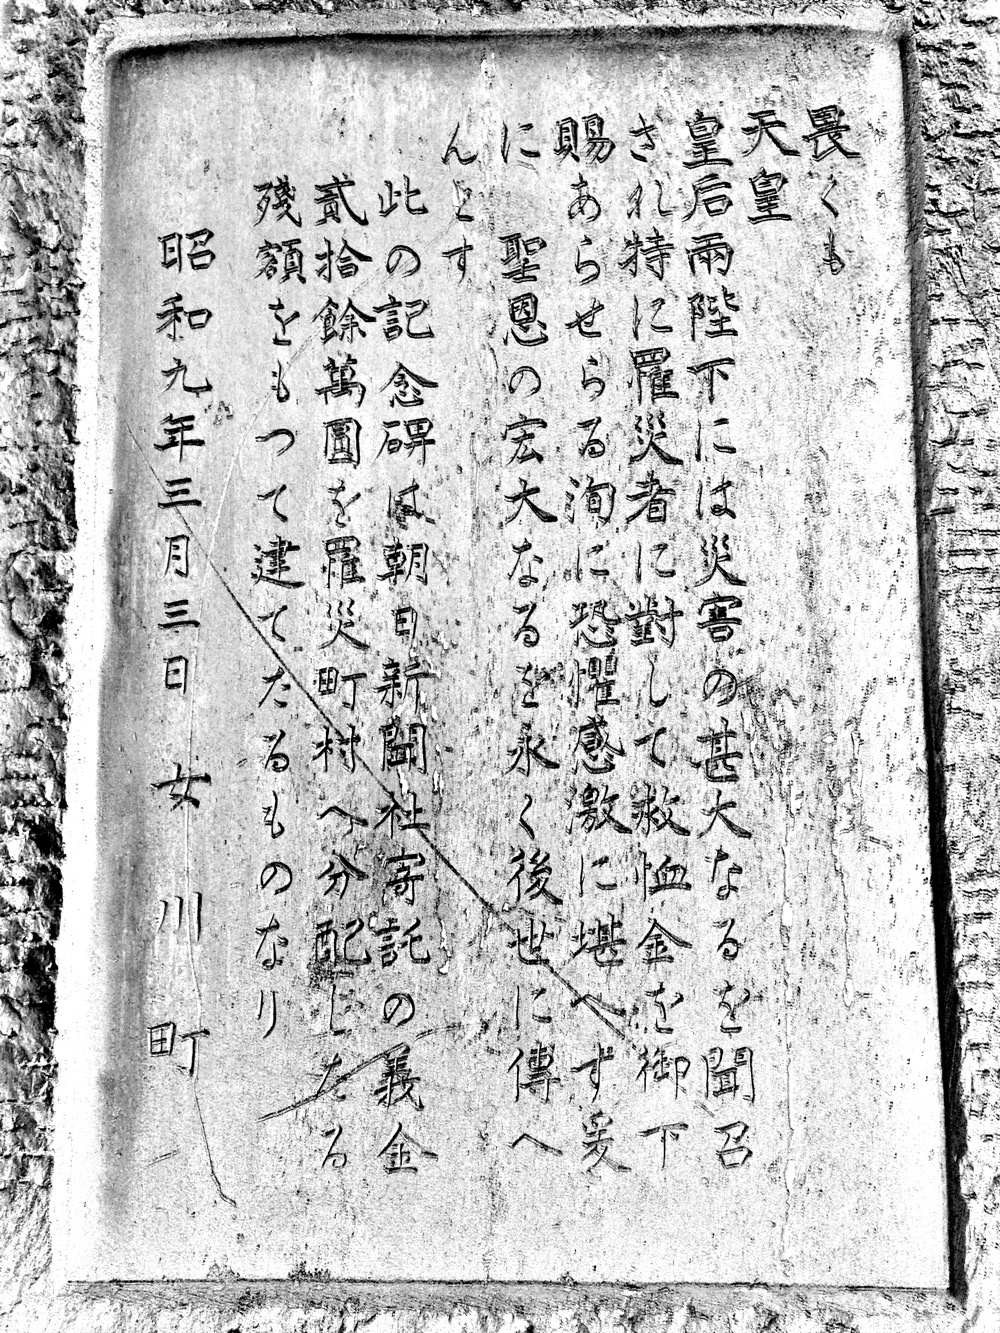 畏くも
天皇
皇后兩陛下には災害の甚大なるを聞召
され特に罹災者に對して救恤金を御下
賜あらせらる洵に恐懼感激に堪へず爰
に　聖恩の宏大なるを永く後世に傳へ
んとす
此の記念碑は朝日新聞社寄託の義金
貳拾餘萬圓を罹災町村へ分配したる
殘額をもつて建てたるものなり
昭和九年三月三日　女川町